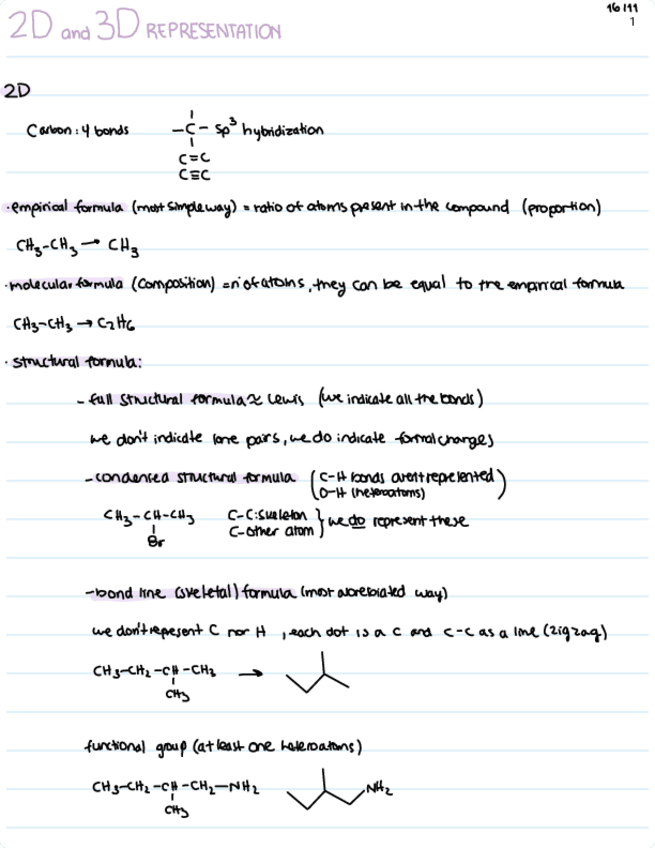 2D and 3D REPRESENTATION
16/11
1
2D
Carbon: 4 bonds -C- sp³ hybridization
C=C
C≡C
·empirical formula (most simple way) = ratio of atoms present in the compound (proportion)
CH3-CH3 → CH3
·molecular formula (composition) = nº of atoms, they can be equal to the empirical formula
CH3-CH3 → C2H6
· structural formula:
- full structural formula ≈ Lewis (we indicate all the bonds)
we don't indicate lone pairs, we do indicate formal charges
- condensed structural formula (C-H bonds aren't represented)
O-H (heteroatoms)
CH3-CH-CH3 C-C: skeleton } we do represent these
Br C-other atom
-bond line (skeletal) formula (most abreviated way)
we don't repesent C nor H , each dot is a C and C-C as a line (zigzag)
CH3-CH2-CH-CH3 →
CH3
functional group (at least one heteroatoms)
CH3-CH2-CH-CH2-NH2 NH2
CH3